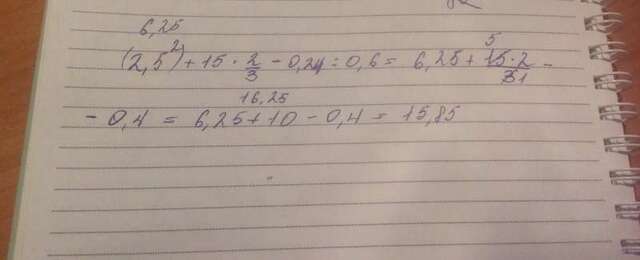 6,25
(2,5²) + 15 · 2/3 - 0,24 : 0,6 = 6,25 + 15 · 2/31 -
5
16,25
- 0,4 = 6,25 + 10 - 0,4 = 15,85